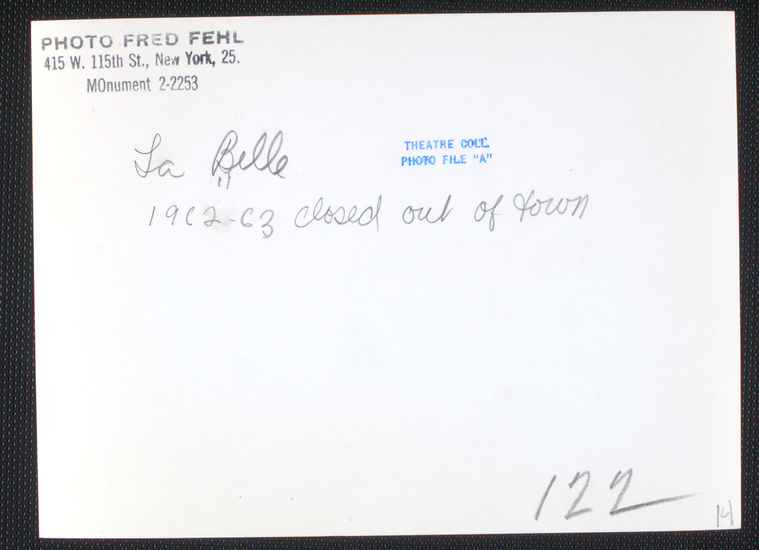 PHOTO FRED FEHL
415 W. 115th St., New York, 25.
MOnument 2-2253
THEATRE COLL.
PHOTO FILE "A"
La Belle
1962-63 closed out of town
122
14